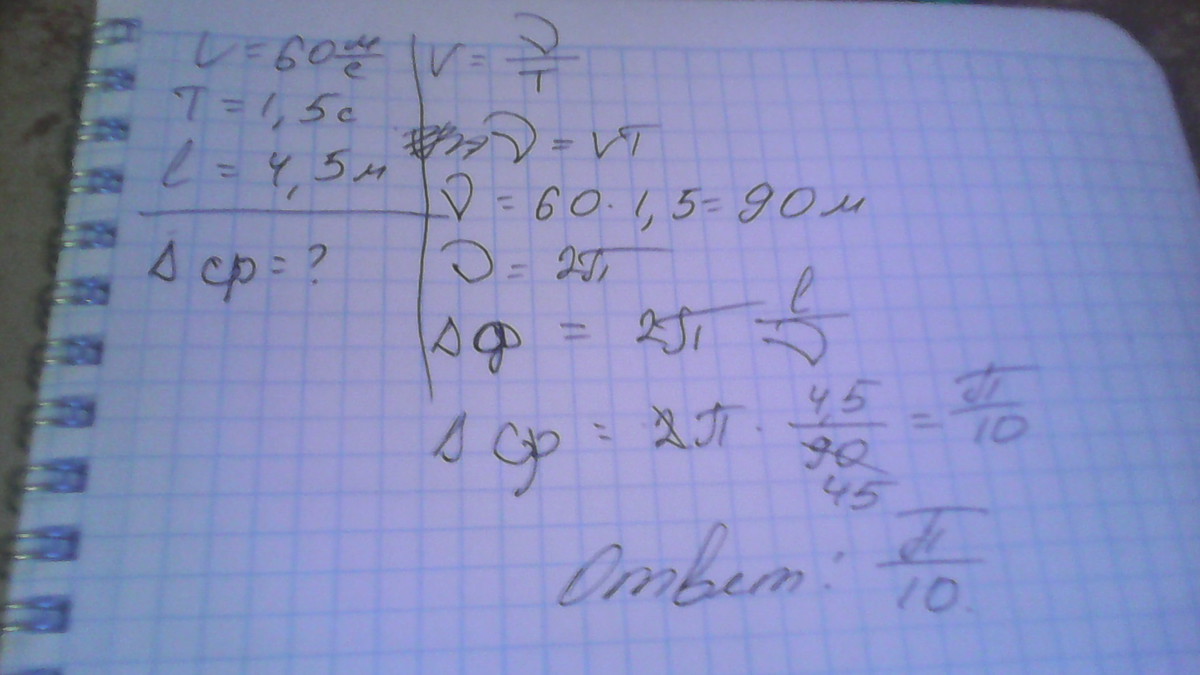 V = 60 м/с
T = 1,5 с
l = 4,5 м
Δφ = ?
V = λ/T
λ = VT
λ = 60 · 1,5 = 90 м
λ = 2π
Δφ = 2π l/λ
Δφ = 2π · 4,5/90 45 = π/10
Ответ: π/10.